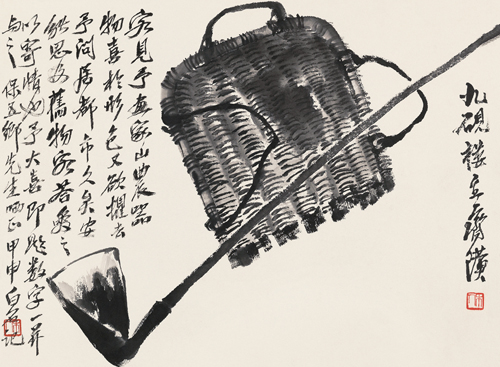 九硯樓主齊璜
客見予畫家山農器
物喜於形色又欲攫去
予閒居都市久矣安
能思及舊物客若愛之
以寄情也予大喜即題數字一并
與之 保五鄉先生哂正 甲申白石記